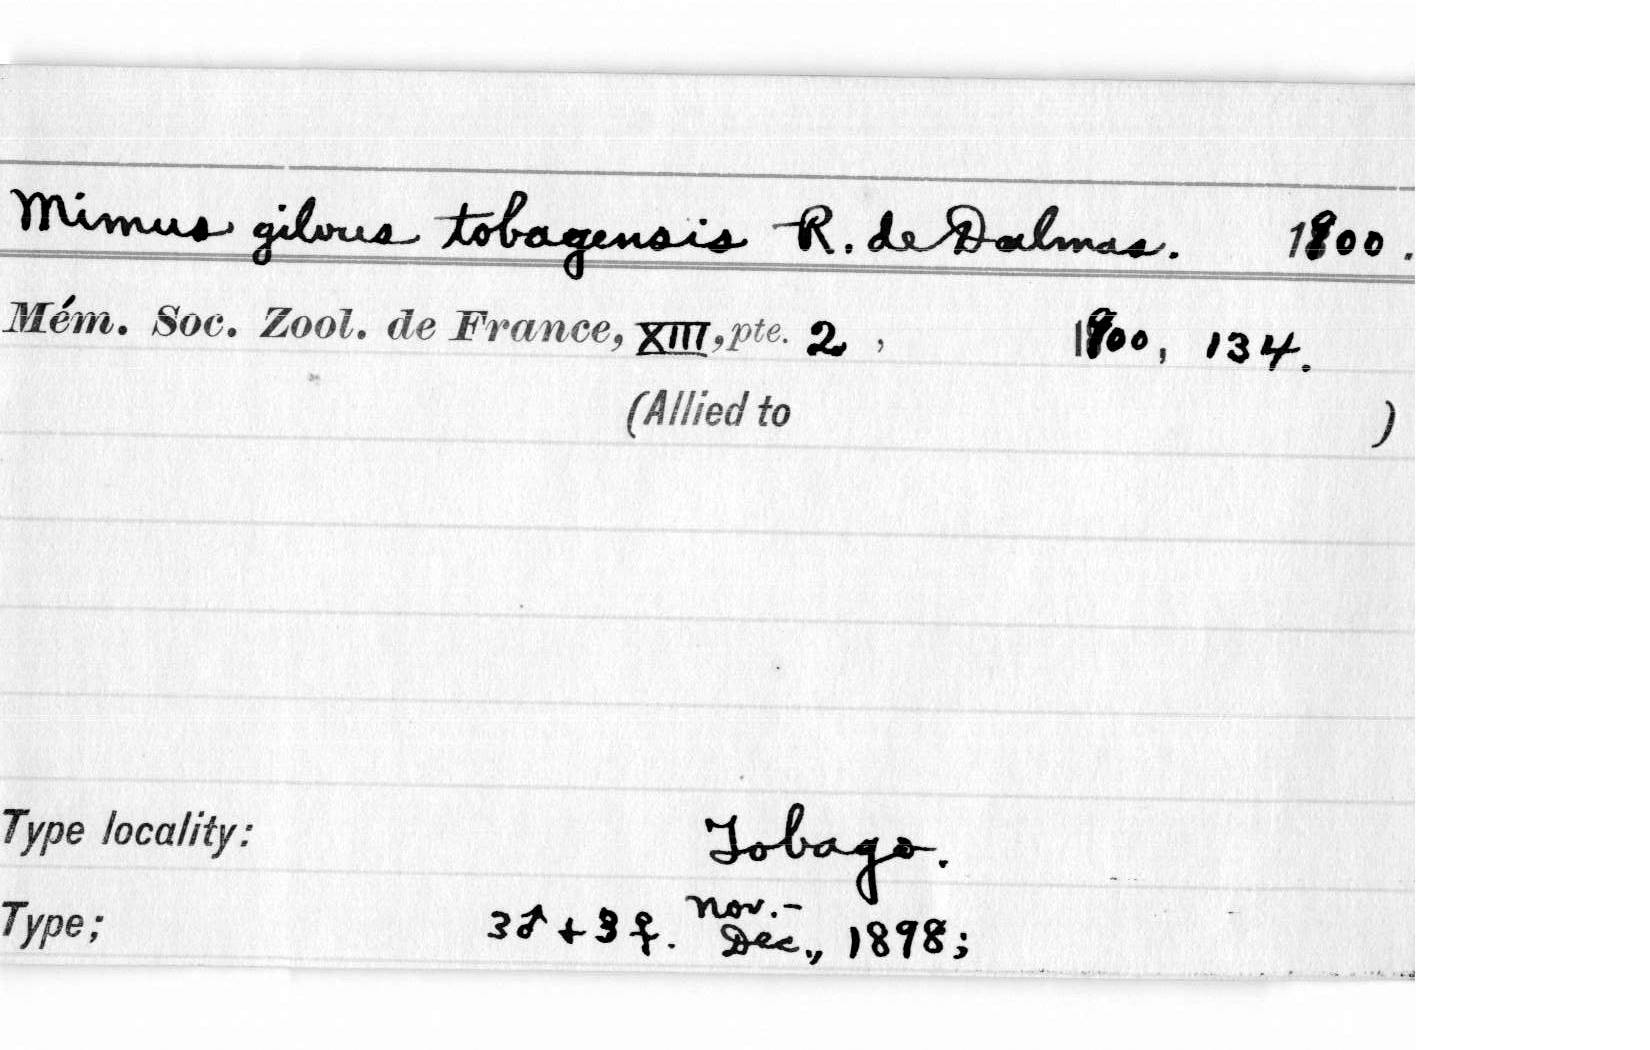 Mimus gilvus tobagensis R. de Dalmas. 1900.
Mém. Soc. Zool. de France, XIII, pte. 2, 1900, 134.
(Allied to )
Type locality: Tobago.
Type; 3♂ + 3♀. Nov.-
Dec., 1898;